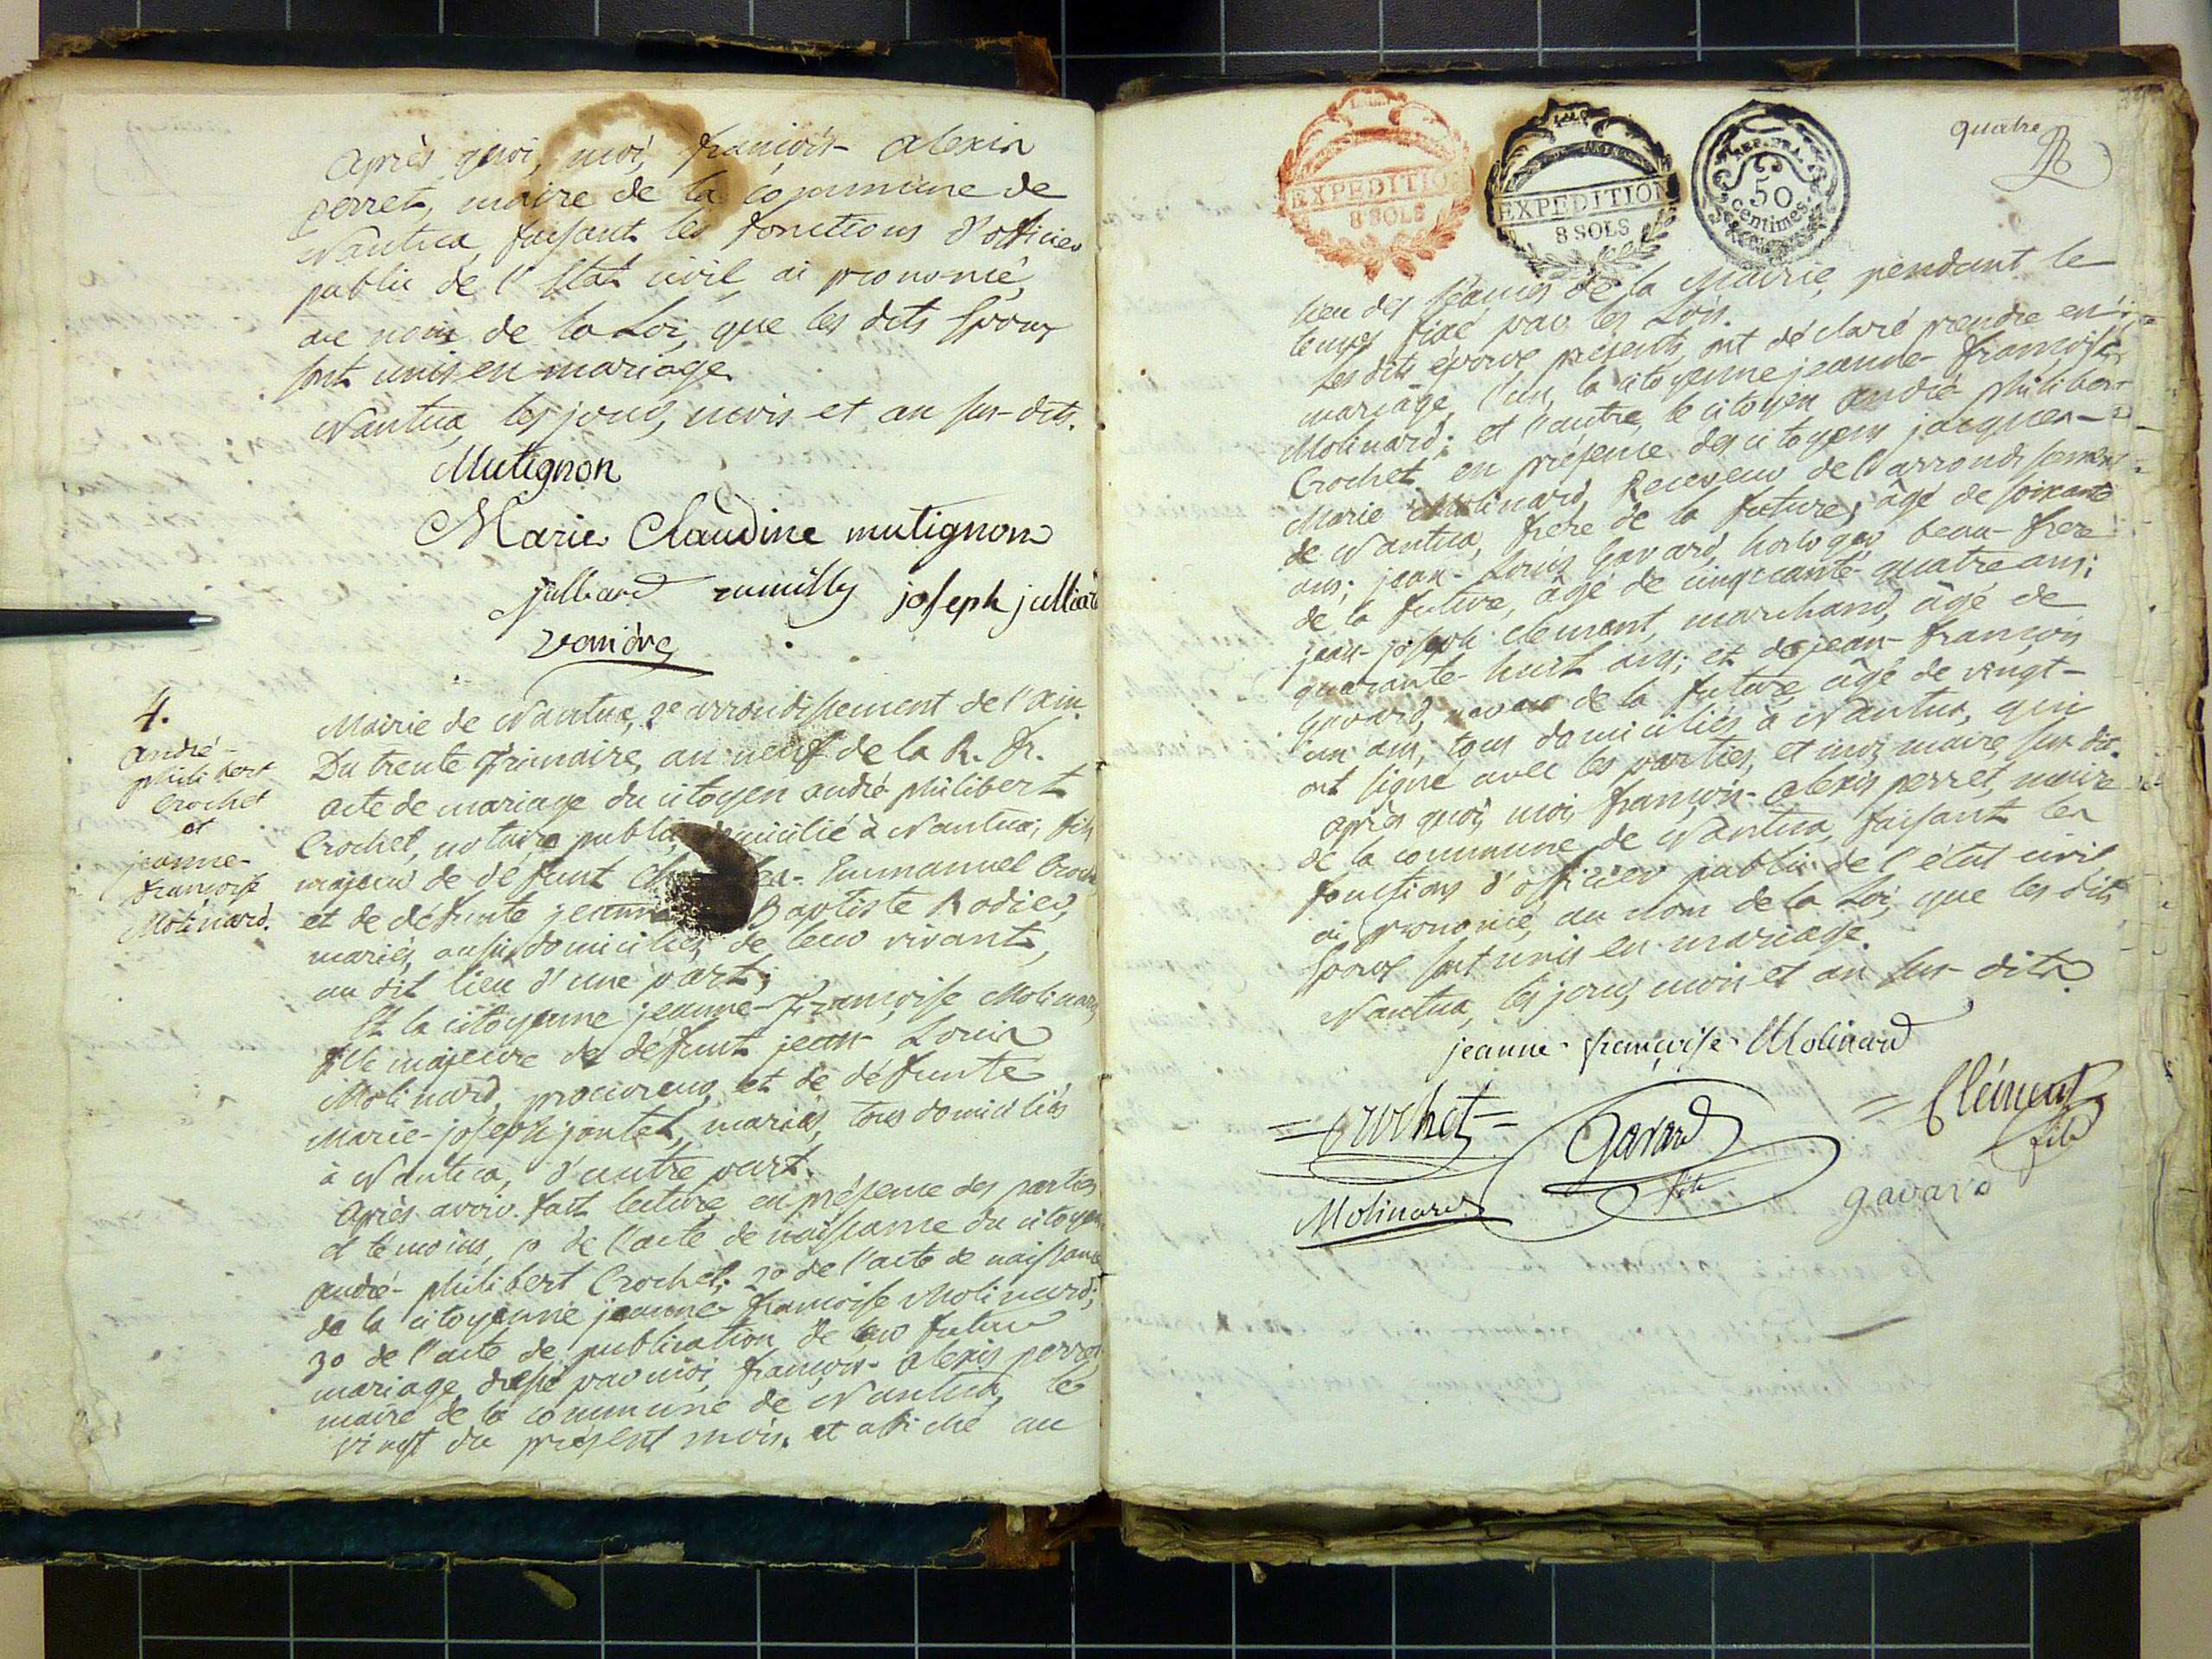 après quoi, moi, françois-alexis
perret, maire de la commune de
Nantua, faisant les fonctions d'officier
public de l'Etat civil, ai prononcé,
au nom de la Loi, que les dits Epoux
sont unis en mariage.
Nantua, les jour, mois et an sus-dits.
Mutignon
Marie Claudine mutignon
julliard rumilly joseph julliard
4.
andré-
philibert
Crochet
et
jeanne-
françoise
Molinard.
Mairie de Nantua, 2e arrondissement de l'ain.
Du trente frimaire, an neuf de la R. fr.
acte de mariage du citoyen andré philibert
Crochet, notaire public, domicilié à Nantua, fils
majeur de défunt Emmanuel Croch
et de défunte jeanne Baptiste Rodier,
mariés, aussi domiciliés, de leur vivant,
au dit lieu d'une part;
Et la citoyenne jeanne-françoise Molinard
fille majeure de défunt jean-Louis
Molinard, procureur, et de défunte
Marie-joseph jantet, mariés, tous domiciliés
à Nantua, d'autre part.
après avoir fait lecture, en présence des parties
et témoins, 1o de l'acte de naissance du citoyen
andré-philibert Crochet; 2o de l'acte de naissance
de la citoyenne jeanne-françoise Molinard;
3o de l'acte de publication de leur futur
mariage, dressé par moi, françois-alexis perret
maire de la commune de Nantua, le
vingt du présent mois, et affiché au
EXPEDITION
8 SOLS
EXPEDITION
8 SOLS
REP. FRA.
50
centimes.
quatre
lieu des séances de la Mairie, pendant le
temps fixé par les Lois.
Les dits époux présents, ont déclaré prendre en
mariage, l'un, la citoyenne jeanne-françoise
Molinard; et l'autre, le citoyen andré-philibert
Crochet. en présence des citoyens jacques-
Marie Molinard, Receveur de l'arrondissement
de Nantua, frere de la future, âgé de soixante
ans; jean-Louis Gavard, horloger, beau-frere
de la future, âgé de cinqcante-quatre ans;
jean-joseph clemant, marchand, âgé de
quarante-huit ans; et de jean-françois
gavard, neveu de la future, âgé de vingt-
un ans, tous domiciliés à Nantua, qui
ont signé avec les parties, et moi, maire, sus-dit.
après quoi, moi, françois-alexis perret, maire
de la commune de Nantua, faisant les
fonctions d'officier public de l'état civil
ai prononcé, au nom de la Loi, que les dits
Epoux sont unis en mariage.
Nantua, les jour, mois et an sus-dits.
jeanne-françoise Molinard
=crochet= Gavard = Clément
fils fils
Molinard gavard